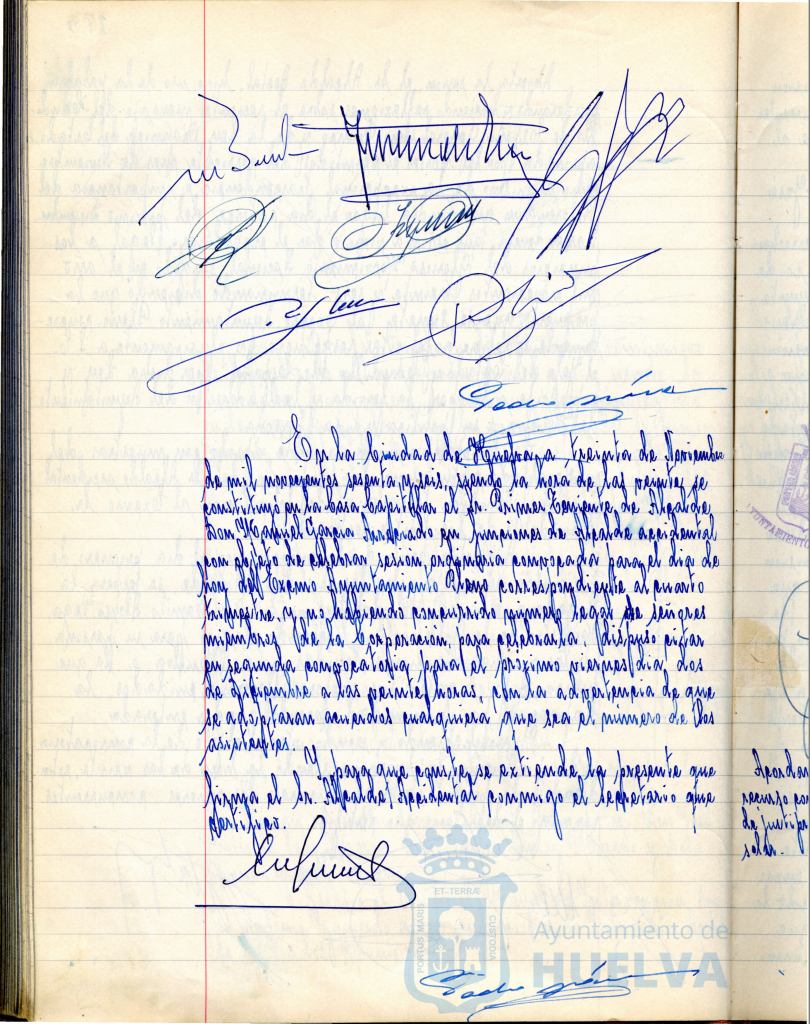 En la Ciudad de Huelva, a treinta de Noviembre
de mil novecientos sesenta y seis, siendo la hora de las veinte se
constituyó en la Casa Capitular el Sr. Primer Teniente de Alcalde
Don Manuel García en funciones de Alcalde accidental
con objeto de celebrar sesión ordinaria convocada para el día de
hoy del Excmo Ayuntamiento Pleno correspondiente al cuarto
trimestre, y no habiendo concurrido número legal de señores
miembros de la Corporación para celebrarla. Dispuso citar
en segunda convocatoria para el próximo viernes día dos
de Diciembre a las veinte horas, con la advertencia de que
se adoptaran acuerdos cualquiera que sea el número de los
asistentes.
Y para que conste se extiende la presente que
firma el Sr. Alcalde Accidental conmigo el Secretario que
certifico.
ET-TERRÆ
PORTUS MARIS
CUSTODIA
Ayuntamiento de
HUELVA